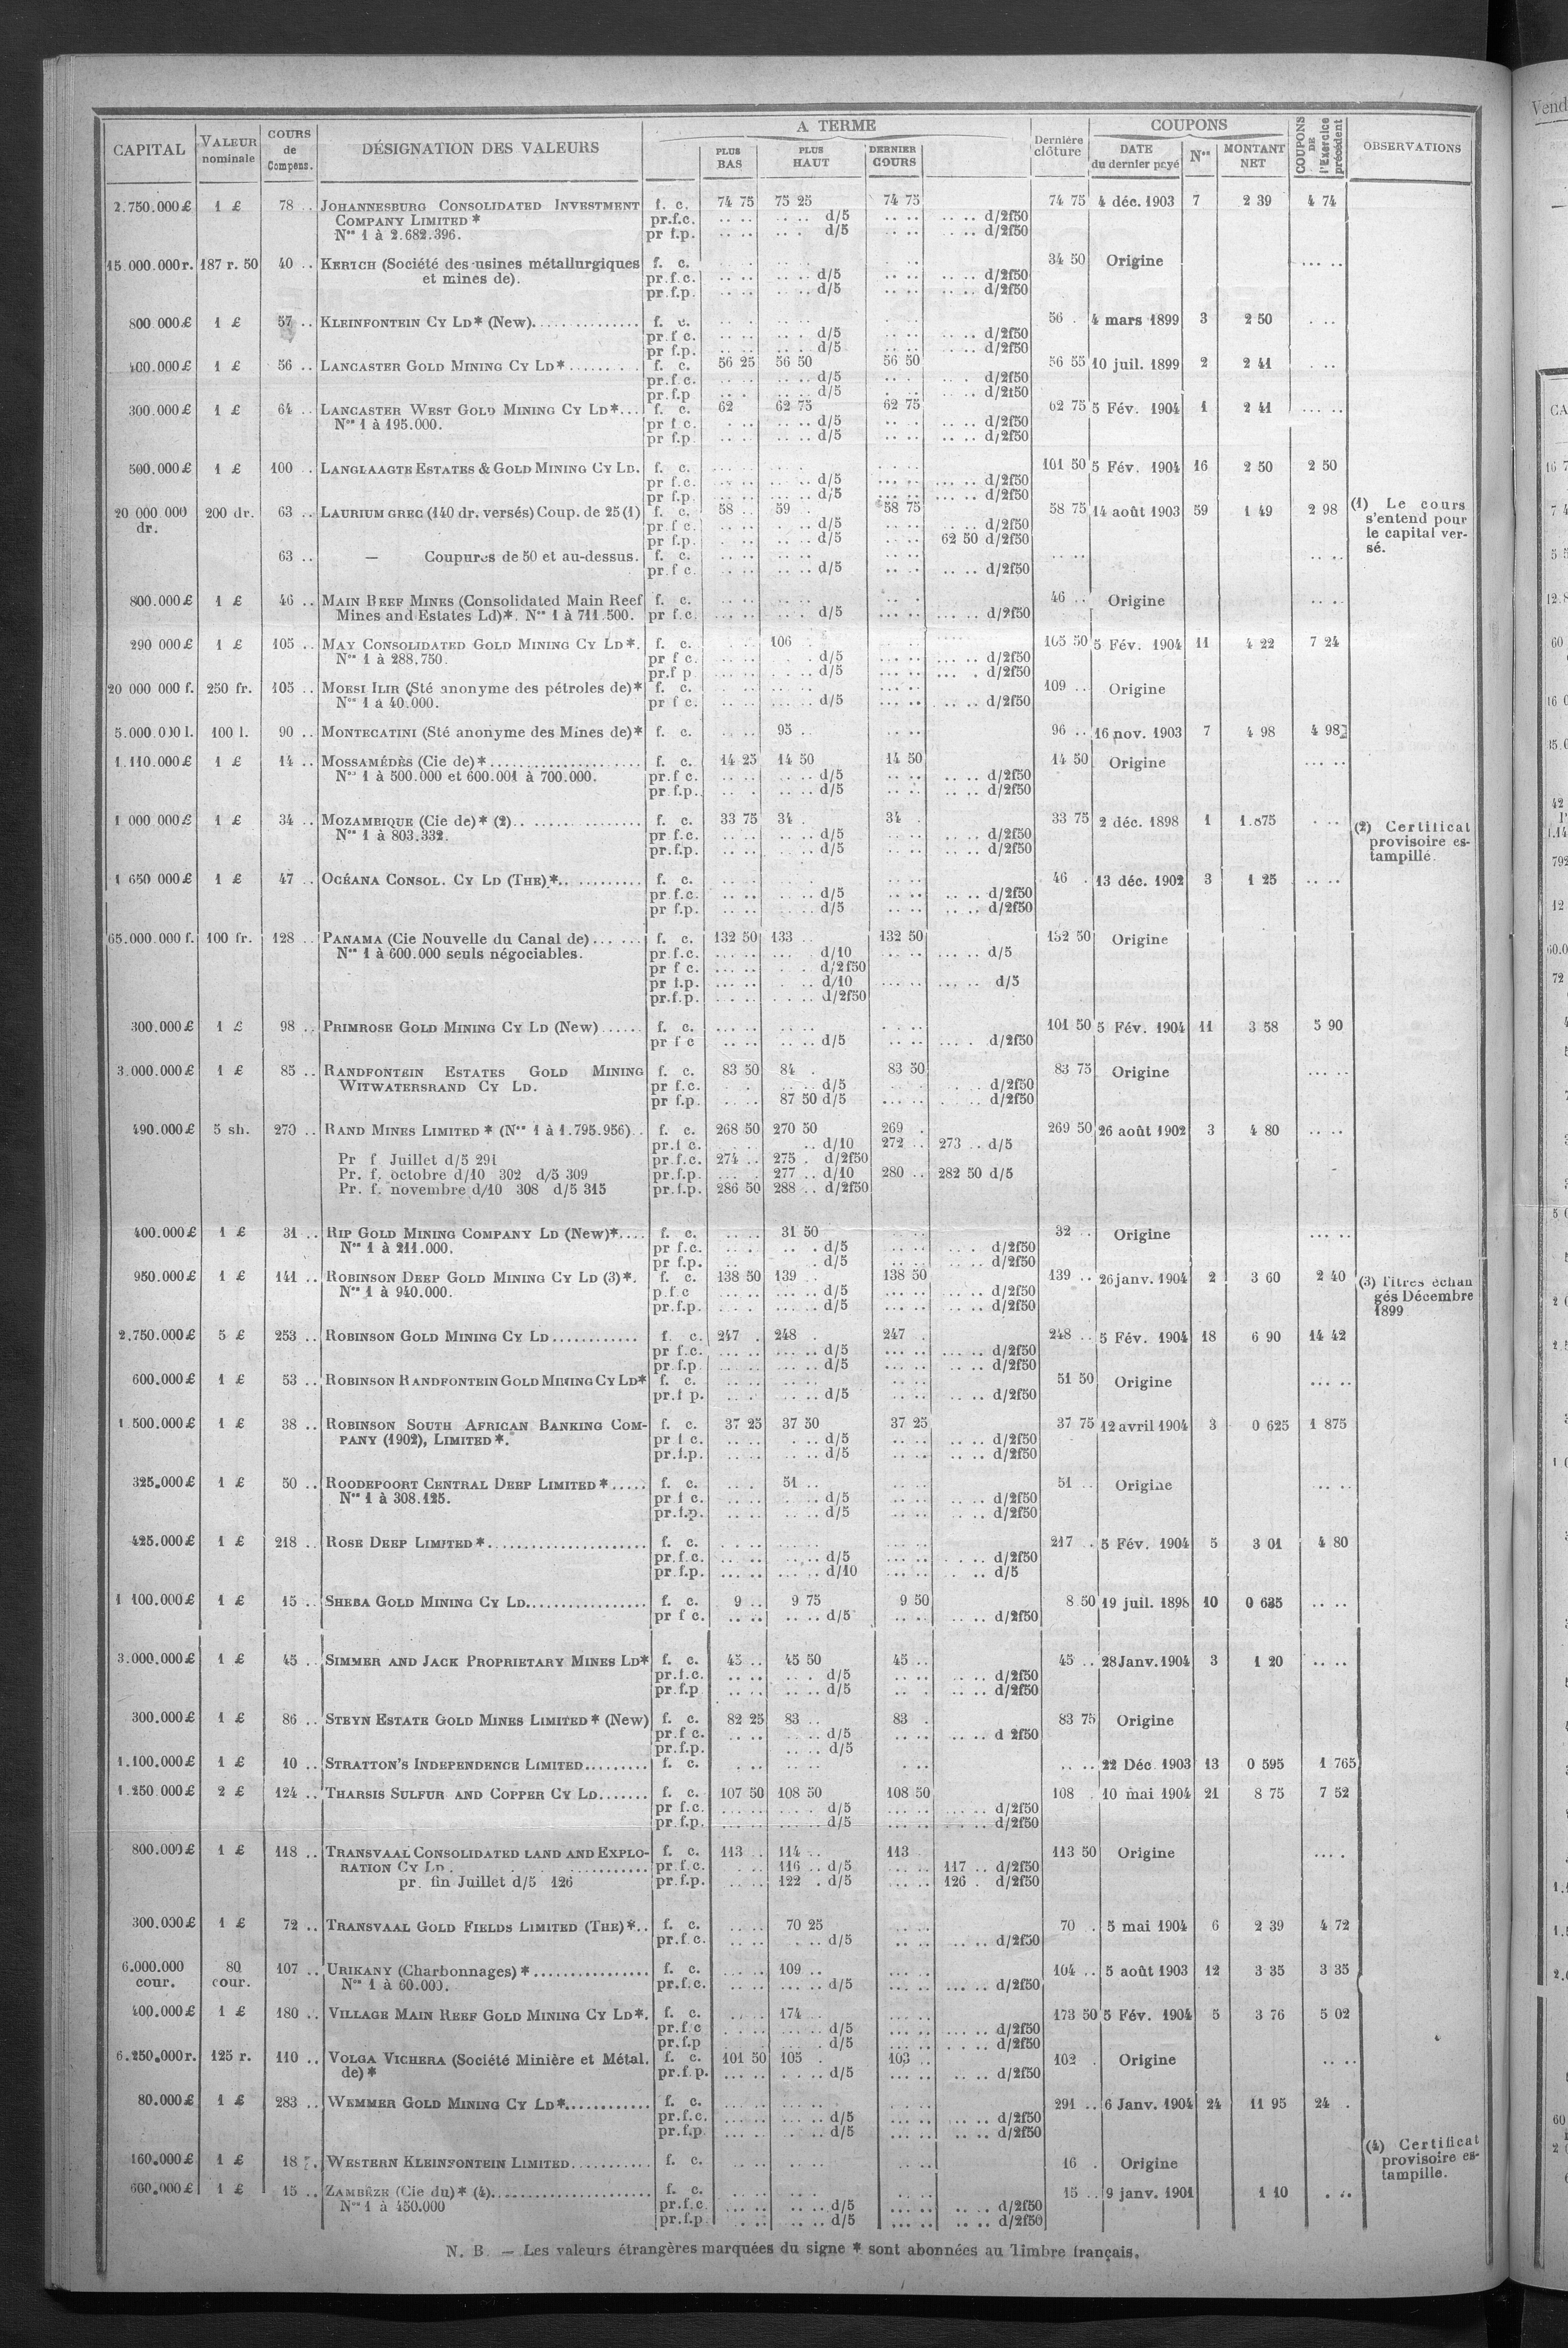 CAPITAL | VALEUR nominale | COURS de Compens. | DÉSIGNATION DES VALEURS | A TERME | PLUS BAS | PLUS HAUT | DERNIER COURS | Dernière clôture | COUPONS | DATE du dernier payé | Nos | MONTANT NET | COUPONS DE l'Exercice précédent | OBSERVATIONS
2.750.000 £ 1 £ 78 .. JOHANNESBURG CONSOLIDATED INVESTMENT f. c. 74 75 75 25 74 75 74 75 4 déc. 1903 7 2 39 4 74
COMPANY LIMITED * pr.f.c. d/5 d/2f50
Nos 1 à 2.682.396. pr f.p. d/5 d/2f50
15.000.000 r. 187 r. 50 40 .. KERTCH (Société des usines métallurgiques f. c. 34 50 Origine
et mines de). pr.f.c. d/5 d/2f50
pr.f.p. d/5 d/2f50
800.000 £ 1 £ 57 .. KLEINFONTEIN CY LD* (New) f. c. 56 . 4 mars 1899 3 2 50
pr.f c. d/5 d/2f50
pr f.p. d/5 d/2f50
400.000 £ 1 £ 56 .. LANCASTER GOLD MINING CY LD* f. c. 56 25 56 50 56 50 56 55 10 juil. 1899 2 2 41
pr.f.c. d/5 d/2f50
pr.f.p d/5 d/2f50
300.000 £ 1 £ 64 .. LANCASTER WEST GOLD MINING CY LD* f. c. 62 62 75 62 75 62 75 5 Fév. 1904 1 2 41
Nos 1 à 195.000. pr f c. d/5 d/2f50
pr f.p. d/5 d/2f50
500.000 £ 1 £ 100 .. LANGLAAGTE ESTATES & GOLD MINING CY LD. f. c. 101 50 5 Fév. 1904 16 2 50 2 50
pr f.c. d/5 d/2f50
pr f.p. d/5 d/2f50
20 000 000 200 dr. 63 .. LAURIUM GREC (140 dr. versés) Coup. de 25 (1) f. c. 58 .. 59 . 58 75 58 75 14 août 1903 59 1 49 2 98 (1) Le cours
dr. pr.f c. d/5 d/2f50 s'entend pour
pr f.p. d/5 62 50 d/2f50 le capital ver-
63 .. — Coupures de 50 et au-dessus. f. c. sé.
pr.f c. d/5 d/2f50
800.000 £ 1 £ 46 .. MAIN REEF MINES (Consolidated Main Reef f. c. 46 .. Origine
Mines and Estates Ld)*. Nos 1 à 711.500. pr f.c. d/5 d/2f50
290 000 £ 1 £ 105 .. MAY CONSOLIDATED GOLD MINING CY LD*. f. c. 106 105 50 5 Fév. 1904 11 4 22 7 24
Nos 1 à 288.750. pr f c. d/5 d/2f50
pr.f p d/5 d/2f50
20 000 000 f. 250 fr. 105 .. MOESI ILIR (Sté anonyme des pétroles de)* f. c. 109 .. Origine
Nos 1 à 40.000. pr f c. d/5 d/2f50
5.000.000 l. 100 l. 90 .. MONTECATINI (Sté anonyme des Mines de)* f. c. 95 .. 96 .. 16 nov. 1903 7 4 98 4 98
1.110.000 £ 1 £ 14 .. MOSSAMÉDÈS (Cie de)* f. c. 14 25 14 50 14 50 14 50 Origine
Nos 1 à 500.000 et 600.001 à 700.000. pr.f c. d/5 d/2f50
pr.f.p. d/5 d/2f50
1 000 000 £ 1 £ 34 .. MOZAMBIQUE (Cie de)* (2) f. c. 33 75 34 . 34 . 33 75 2 déc. 1898 1 1.875 (2) Certificat
Nos 1 à 803.332. pr f.c. d/5 d/2f50 provisoire es-
pr.f.p. d/5 d/2f50 tampillé.
1 650 000 £ 1 £ 47 .. OCÉANA CONSOL. CY LD (THE)* f. c. 46 . 13 déc. 1902 3 1 25
pr f.c. d/5 d/2f50
pr f.p. d/5 d/2f50
65.000.000 f. 100 fr. 128 .. PANAMA (Cie Nouvelle du Canal de) f. c. 132 50 133 .. 132 50 132 50 Origine
Nos 1 à 600.000 seuls négociables. pr.f.c. d/10 d/5
pr f c. d/2f50
pr f.p. d/10 d/5
pr.f.p. d/2f50
300.000 £ 1 £ 98 .. PRIMROSE GOLD MINING CY LD (New) f. c. 101 50 5 Fév. 1904 11 3 58 5 90
pr f c d/5 d/2f50
3.000.000 £ 1 £ 85 .. RANDFONTEIN ESTATES GOLD MINING f. c. 83 50 84 . 83 50 83 75 Origine
WITWATERSRAND CY LD. pr f.c. d/5 d/2f50
pr f.p. 87 50 d/5 d/2f50
490.000 £ 5 sh. 270 .. RAND MINES LIMITED * (Nos 1 à 1.795.956) f. c. 268 50 270 50 269 . 269 50 26 août 1902 3 4 80
pr.f c. d/10 272 .. 273 .. d/5
Pr f Juillet d/5 291 pr.f.c. 274 .. 275 . d/2f50
Pr. f. octobre d/10 302 d/5 309 pr.f.p. 277 .. d/10 280 .. 282 50 d/5
Pr. f. novembre d/10 308 d/5 315 pr.f.p. 286 50 288 .. d/2f50
400.000 £ 1 £ 31 .. RIP GOLD MINING COMPANY LD (New)* f. c. 31 50 32 .. Origine
Nos 1 à 211.000. pr f.c. d/5 d/2f50
pr f.p. d/5 d/2f50
950.000 £ 1 £ 141 .. ROBINSON DEEP GOLD MINING CY LD (3)*. f. c. 138 50 139 .. 138 50 139 .. 26 janv. 1904 2 3 60 2 40 (3) Titres échan
Nos 1 à 940.000. p.f.c d/5 d/2f50 gés Décembre
pr.f.p. d/5 d/2f50 1899
2.750.000 £ 5 £ 253 .. ROBINSON GOLD MINING CY LD f. c. 247 . 248 . 247 . 248 .. 5 Fév. 1904 18 6 90 14 42
pr f.c. d/5 d/2f50
pr.f.p. d/5 d/2f50
600.000 £ 1 £ 53 .. ROBINSON RANDFONTEIN GOLD MINING CY LD* f. c. 51 50 Origine
pr.f p. d/5 d/2f50
1 500.000 £ 1 £ 38 .. ROBINSON SOUTH AFRICAN BANKING COM- f. c. 37 25 37 50 37 25 37 75 12 avril 1904 3 0 625 1 875
PANY (1902), LIMITED*. pr f c. d/5 d/2f50
pr.f.p. d/5 d/2f50
325.000 £ 1 £ 50 .. ROODEPOORT CENTRAL DEEP LIMITED* f. c. 51 .. 51 .. Origine
Nos 1 à 308.125. pr f c. d/5 d/2f50
pr.f.p. d/5 d/2f50
425.000 £ 1 £ 218 .. ROSE DEEP LIMITED* f. c. 217 . 5 Fév. 1904 5 3 01 4 80
pr.f.c. d/5 d/2f50
pr.f.p. d/10 d/5
1 100.000 £ 1 £ 15 .. SHEBA GOLD MINING CY LD f. c. 9 .. 9 75 9 50 8 50 19 juil. 1898 10 0 625
pr f c. d/5 d/2f50
3.000.000 £ 1 £ 45 .. SIMMER AND JACK PROPRIETARY MINES LD* f. c. 45 .. 45 50 45 .. 45 .. 28 Janv. 1904 3 1 20
pr.f.c. d/5 d/2f50
pr f.p d/5 d/2f50
300.000 £ 1 £ 86 .. STEYN ESTATE GOLD MINES LIMITED* (New) f. c. 82 25 83 .. 83 . 83 75 Origine
pr.f c. d/5 d 2f50
pr.f.p. d/5
1.100.000 £ 1 £ 10 .. STRATTON'S INDEPENDENCE LIMITED f. c. 22 Déc. 1903 13 0 595 1 765
1.250 000 £ 2 £ 124 .. THARSIS SULFUR AND COPPER CY LD f. c. 107 50 108 50 108 50 108 . 10 mai 1904 21 8 75 7 52
pr f.c. d/5 d/2f50
pr f.p. d/5 d/2f50
800.000 £ 1 £ 118 .. TRANSVAAL CONSOLIDATED LAND AND EXPLO- f. c. 113 .. 114 .. 113 113 50 Origine
RATION CY LD. pr.f.c. 116 .. d/5 117 .. d/2f50
pr. fin Juillet d/5 126 pr.f.p. 122 . d/5 126 . d/2f50
300.000 £ 1 £ 72 .. TRANSVAAL GOLD FIELDS LIMITED (THE)* f. c. 70 25 70 . 5 mai 1904 6 2 39 4 72
pr.f.c. d/5 d/2f50
6.000.000 80 107 .. URIKANY (Charbonnages)* f. c. 109 .. 104 .. 5 août 1903 12 3 35 3 35
cour. cour. Nos 1 à 60.000. pr.f.c. d/5 d/2f50
400.000 £ 1 £ 180 .. VILLAGE MAIN REEF GOLD MINING CY LD*. f. c. 174 .. 173 50 5 Fév. 1904 5 3 76 5 02
pr.f c d/5 d/2f50
pr.f.p d/5 d/2f50
6.250.000 r. 125 r. 110 .. VOLGA VICHERA (Société Minière et Métal. f. c. 101 50 105 . 103 .. 102 . Origine
de)* pr.f.p. d/5 d/2f50
80.000 £ 1 £ 283 .. WEMMER GOLD MINING CY LD* f. c. 291 .. 6 Janv. 1904 24 11 95 24 .
pr.f.c. d/5 d/2f50
pr.f.p d/5 d/2f50
160.000 £ 1 £ 18 WESTERN KLEINFONTEIN LIMITED f. c. 16 . Origine (4) Certificat
provisoire es-
tampillé.
600.000 £ 1 £ 15 .. ZAMBÈZE (Cie du)* (4) f. c. 15 .. 9 janv. 1901 1 10
Nos 1 à 450.000 pr.f.c. d/5 d/2f50
pr.f.p d/5 d/2f50
N. B. — Les valeurs étrangères marquées du signe * sont abonnées au Timbre français.
Vend